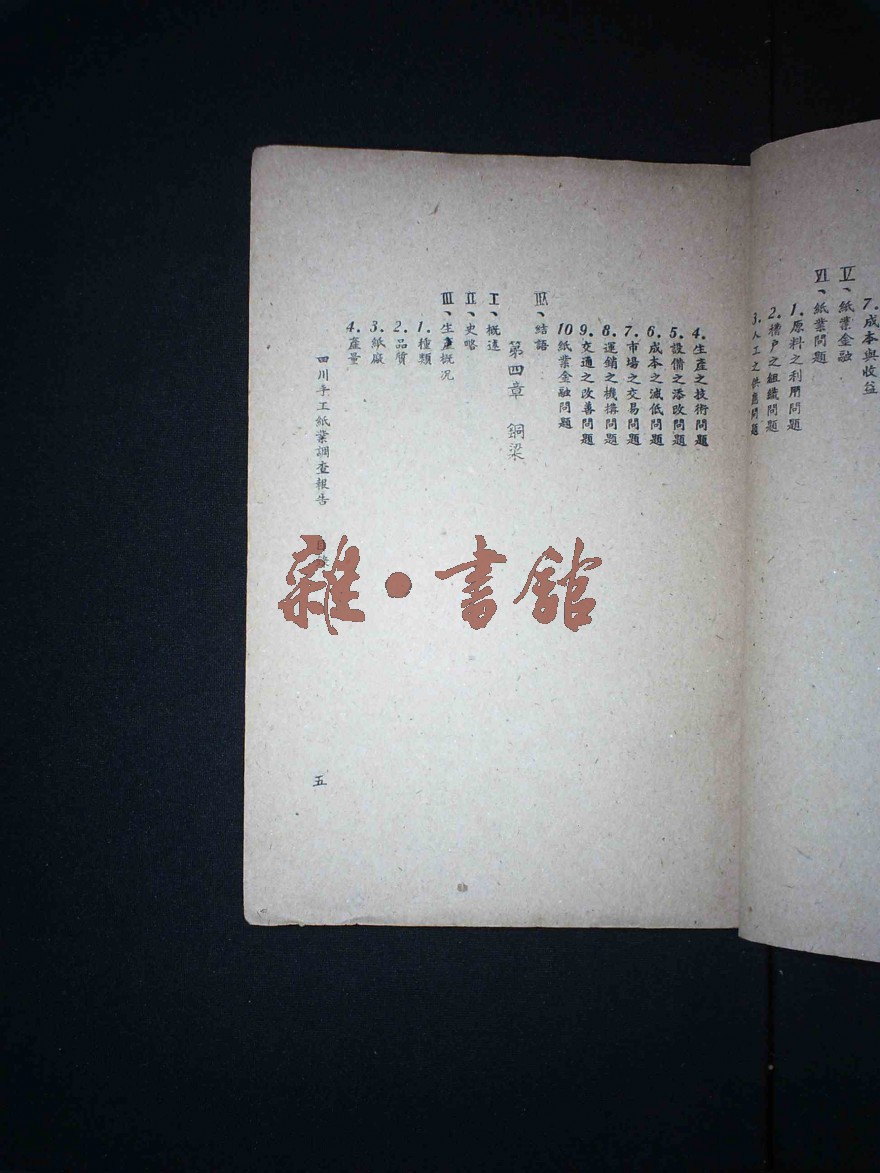 7. 成本與收益
Ⅴ、紙業金融
Ⅵ、紙業問題
1. 原料之利用問題
2. 槽户之組織問題
3. 人工之供應問題
4. 生產之技術問題
5. 設備之添改問題
6. 成本之減低問題
7. 市場之交易問題
8. 運銷之機構問題
9. 交通之改善問題
10 紙業金融問題
Ⅶ、結語
第四章 銅梁
Ⅰ、概述
Ⅱ、史略
Ⅲ、生產概況
1. 種類
2. 品質
3. 紙廠
4. 產量
四川手工紙業調查報告 目錄 五
雜·書館